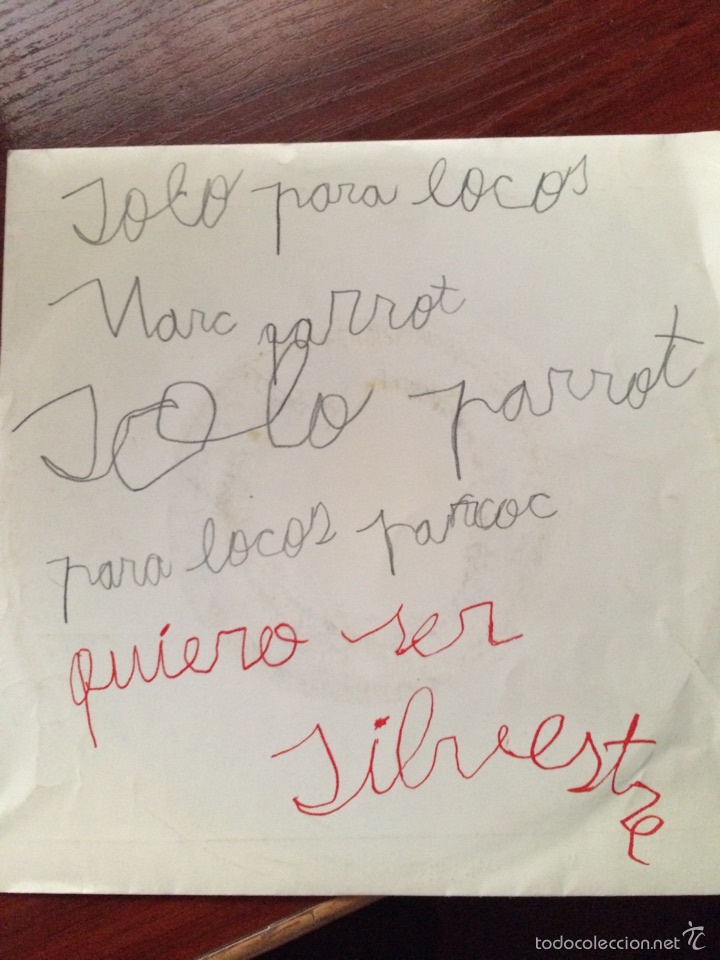 Solo para locos
Marc parrot
Solo parrot
para locos
quiero ser
Silvestre
todocoleccion.net